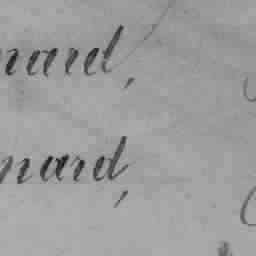 nard,
nard,